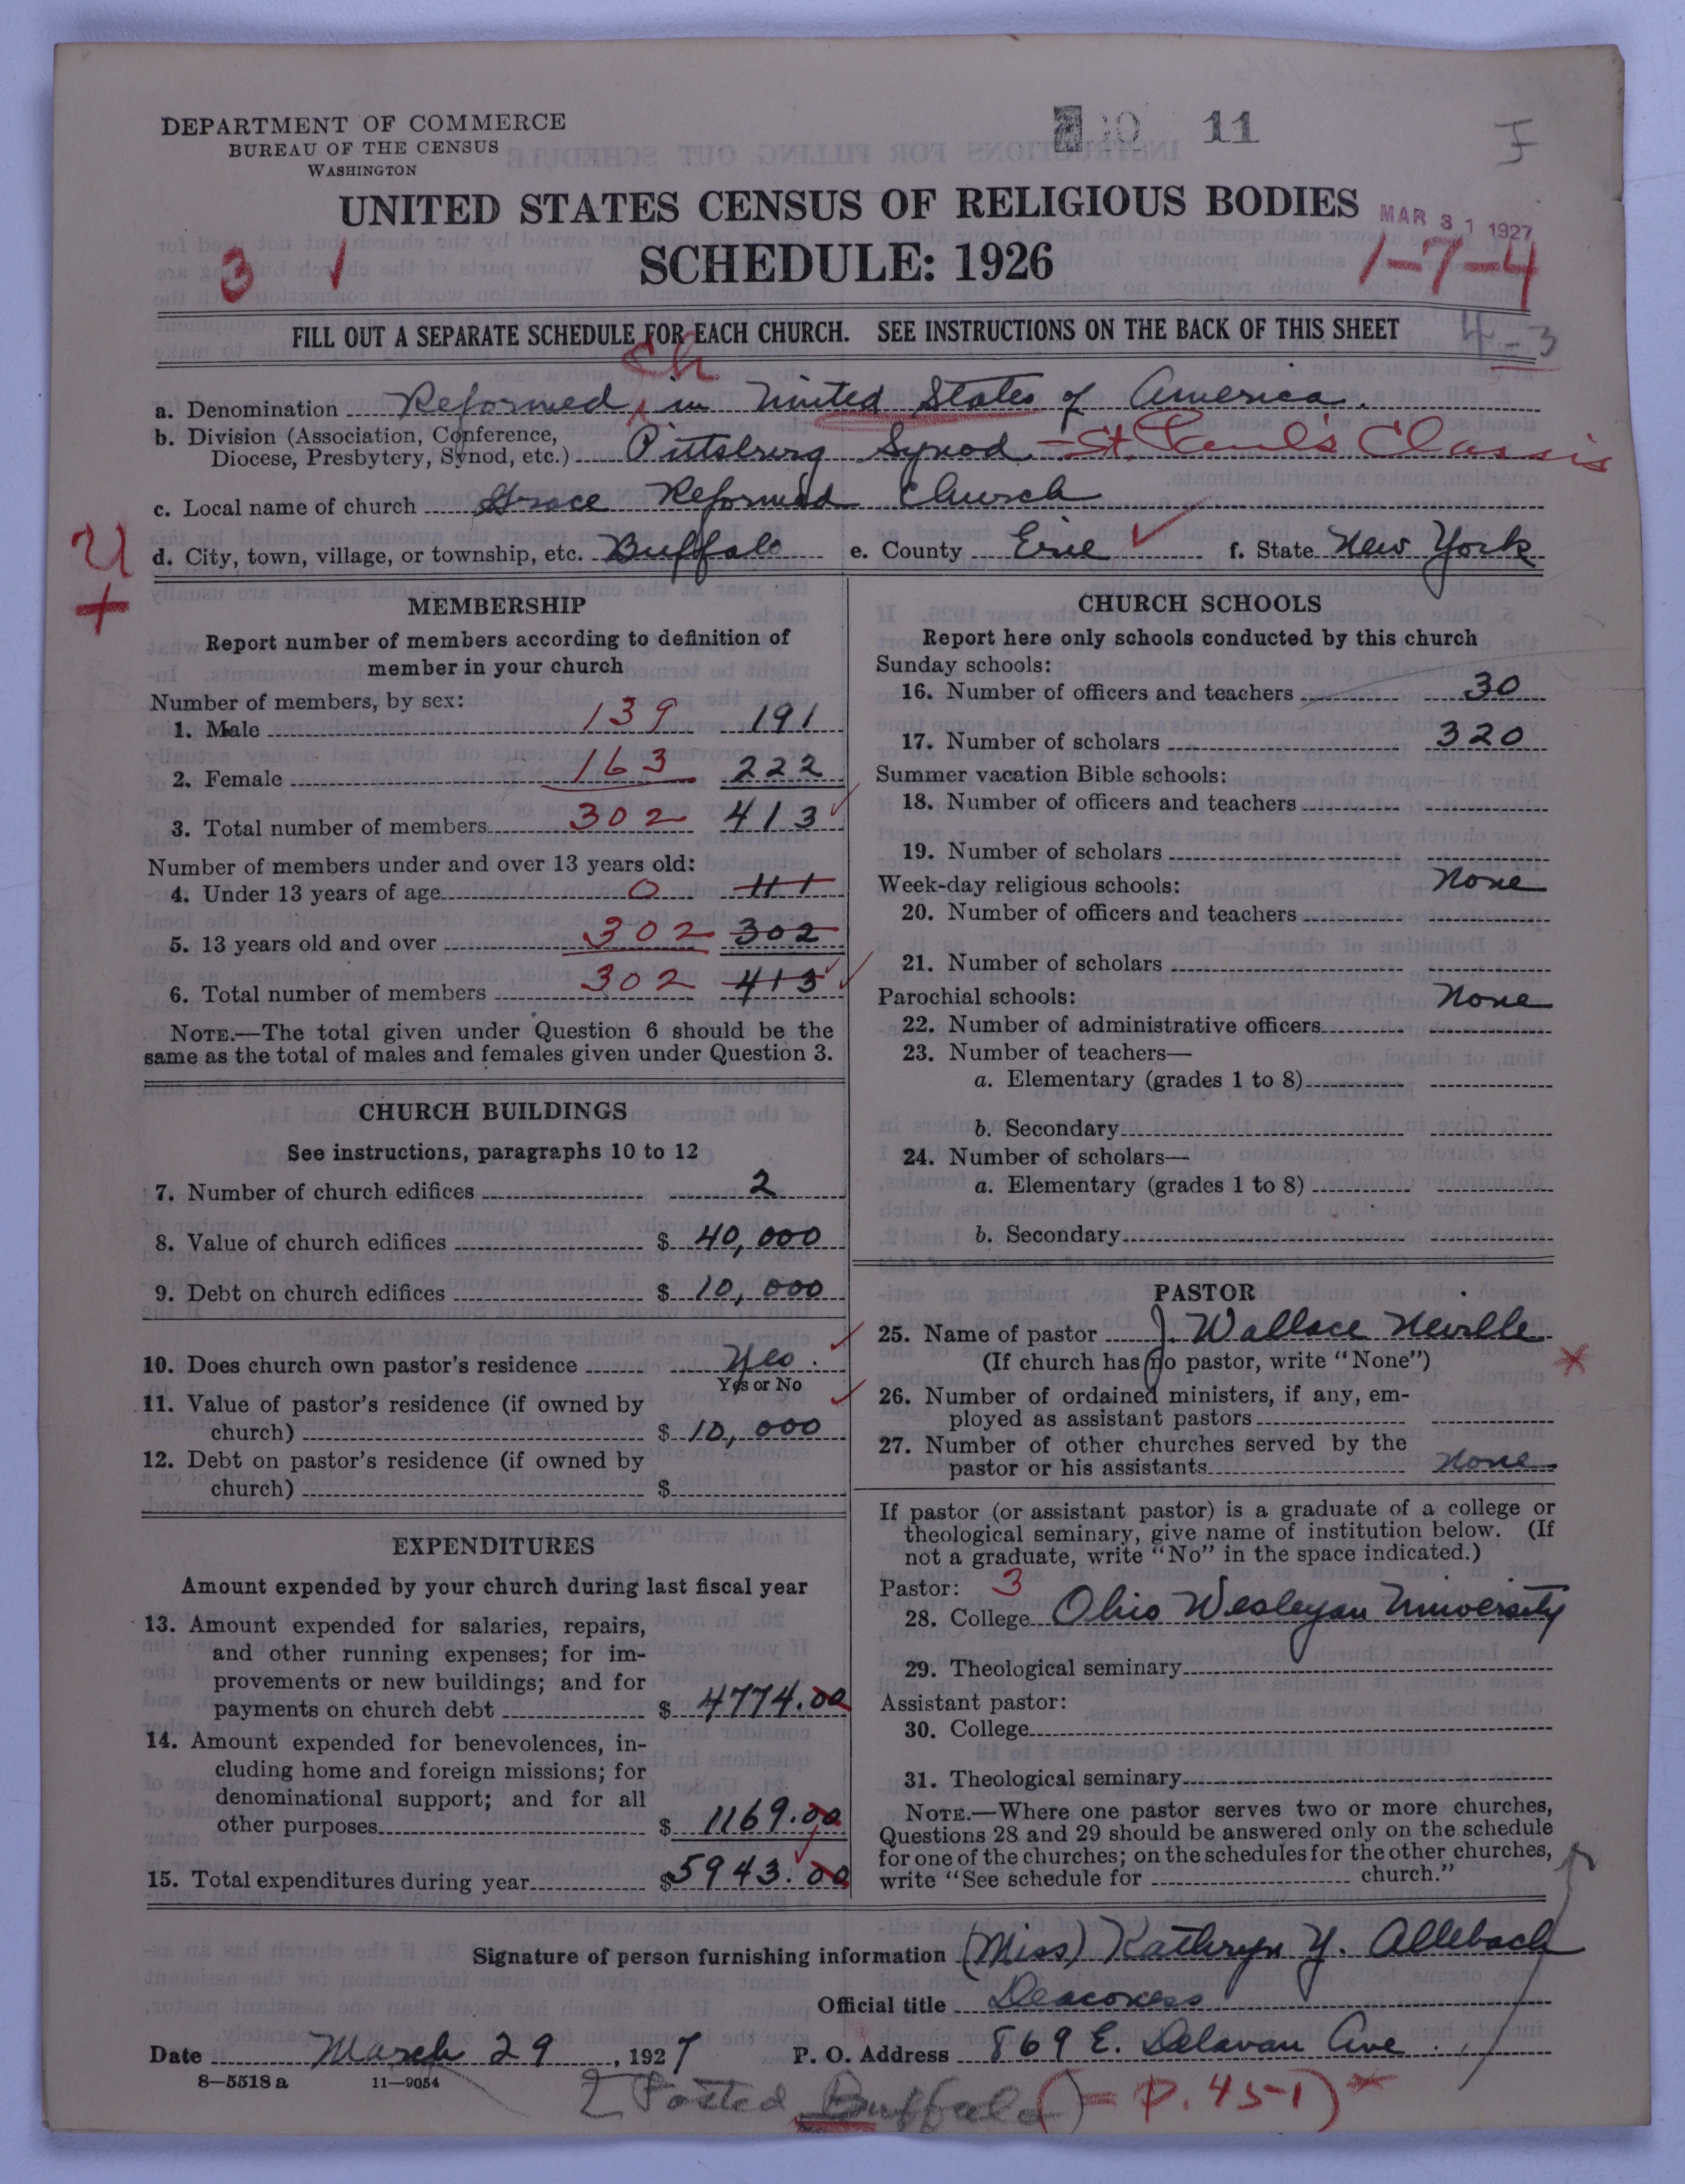 DEPARTMENT OF COMMERCE
BUREAU OF THE CENSUS
WASHINGTON
11
UNITED STATES CENSUS OF RELIGIOUS BODIES
MAR 31 1927
SCHEDULE: 1926
3 1
1-7-4
FILL OUT A SEPARATE SCHEDULE FOR EACH CHURCH. SEE INSTRUCTIONS ON THE BACK OF THIS SHEET
4-3
Ch
a. Denomination Reformed in United States of America.
b. Division (Association, Conference,
Diocese, Presbytery, Synod, etc.) Pittsburg Synod - St. Paul's Classis
c. Local name of church Grace Reformed Church
U
d. City, town, village, or township, etc. Buffalo e. County Erie f. State New York
+
MEMBERSHIP
Report number of members according to definition of
member in your church
Number of members, by sex:
1. Male 139 191
2. Female 163 222
3. Total number of members 302 413
Number of members under and over 13 years old:
4. Under 13 years of age 0 111
5. 13 years old and over 302 302
6. Total number of members 302 413
NOTE.—The total given under Question 6 should be the
same as the total of males and females given under Question 3.
CHURCH BUILDINGS
See instructions, paragraphs 10 to 12
7. Number of church edifices 2
8. Value of church edifices $ 40,000
9. Debt on church edifices $ 10,000
10. Does church own pastor's residence Yes.
Yes or No
11. Value of pastor's residence (if owned by
church) $ 10,000
12. Debt on pastor's residence (if owned by
church) $
EXPENDITURES
Amount expended by your church during last fiscal year
13. Amount expended for salaries, repairs,
and other running expenses; for im-
provements or new buildings; and for
payments on church debt $ 4774.00
14. Amount expended for benevolences, in-
cluding home and foreign missions; for
denominational support; and for all
other purposes $ 1169.00
15. Total expenditures during year $5943.00
CHURCH SCHOOLS
Report here only schools conducted by this church
Sunday schools:
16. Number of officers and teachers 30
17. Number of scholars 320
Summer vacation Bible schools:
18. Number of officers and teachers
19. Number of scholars
Week-day religious schools: None
20. Number of officers and teachers
21. Number of scholars
Parochial schools: None
22. Number of administrative officers
23. Number of teachers—
a. Elementary (grades 1 to 8)
b. Secondary
24. Number of scholars—
a. Elementary (grades 1 to 8)
b. Secondary
PASTOR
25. Name of pastor J. Wallace Neville
(If church has no pastor, write "None")
26. Number of ordained ministers, if any, em-
ployed as assistant pastors
27. Number of other churches served by the
pastor or his assistants None
If pastor (or assistant pastor) is a graduate of a college or
theological seminary, give name of institution below. (If
not a graduate, write "No" in the space indicated.)
Pastor: 3
28. College Ohio Wesleyan University
29. Theological seminary
Assistant pastor:
30. College
31. Theological seminary
NOTE.—Where one pastor serves two or more churches,
Questions 28 and 29 should be answered only on the schedule
for one of the churches; on the schedules for the other churches,
write "See schedule for church."
Signature of person furnishing information (Miss) Kathryn Y. Allebach
Official title Deaconess
Date March 29, 1927 P. O. Address 869 E. Delavan Ave.
8-5518a 11-9054
[Posted Buffalo (= P. 451)*